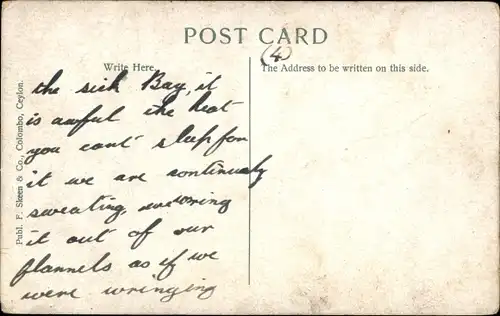 POST CARD
(4)
Write Here.
The Address to be written on this side.
Publ. F. Skeen & Co., Colombo, Ceylon.
the sick Bay, it
is awful the heat
you cant sleep for
it we are continualy
sweating,
it out of our
flannels as if we
were wringing